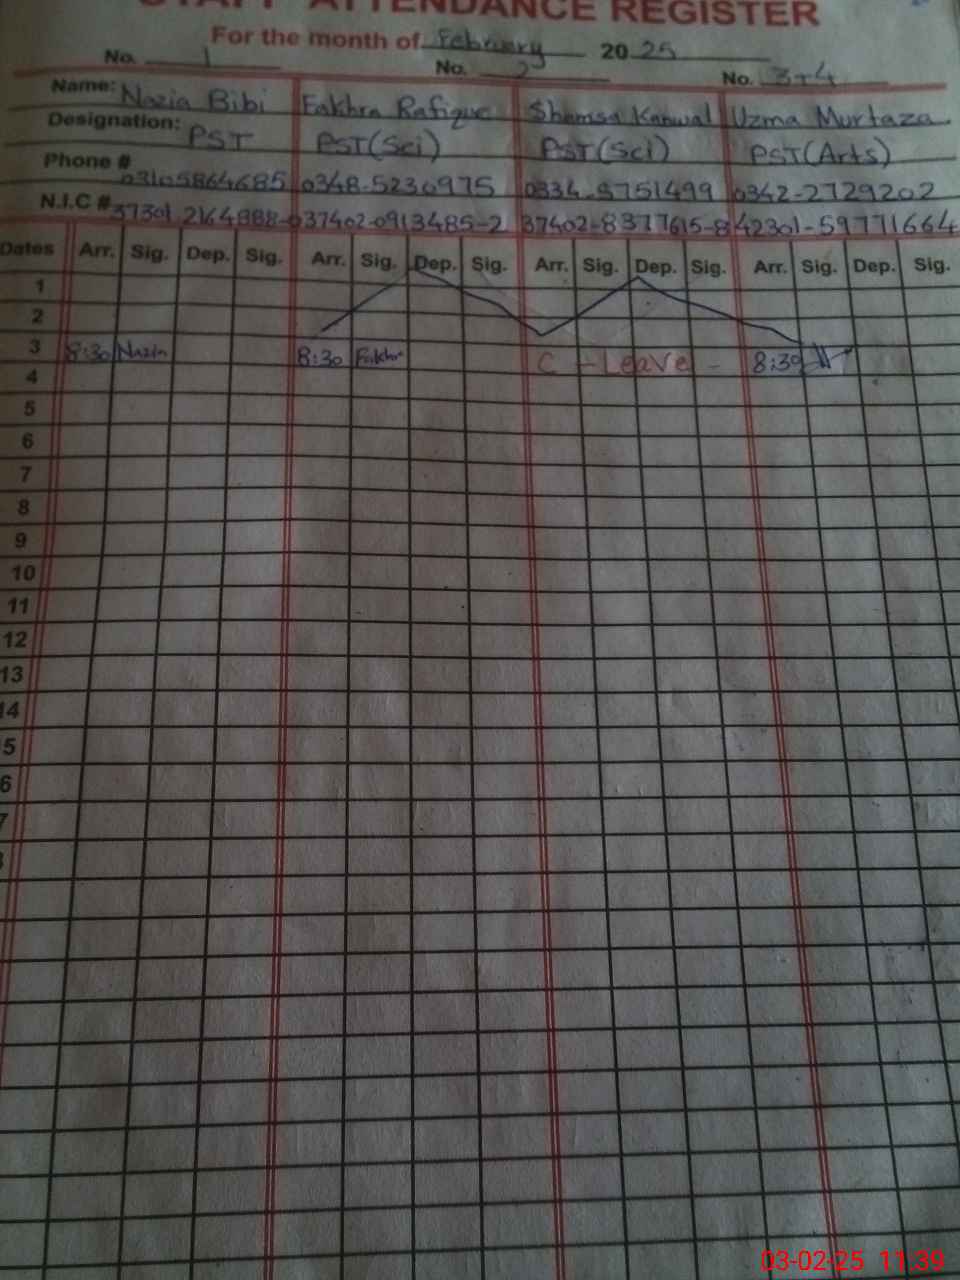 STAFF ATTENDANCE REGISTER
For the month of February 2025
No. 1 No. 2 No. 3+4
Name: Nazia Bibi Fakhra Rafique Shamsa Kanwal Uzma Murtaza
Designation: PST PST(Sci) PST(Sci) PST(Arts)
Phone # 03105864685 0348-5230975 0334-8751499 0342-2729202
N.I.C # 37301 2164988-0 37402-0913485-2 37402-8377615-8 42301-59771664
Dates Arr. Sig. Dep. Sig. Arr. Sig. Dep. Sig. Arr. Sig. Dep. Sig. Arr. Sig. Dep. Sig.
1
2
3 8:30 Nazia 8:30 Fakhr C - Leave - 8:30
4
5
6
7
8
9
10
11
12
13
14
5
6
7
03-02-25 11:39